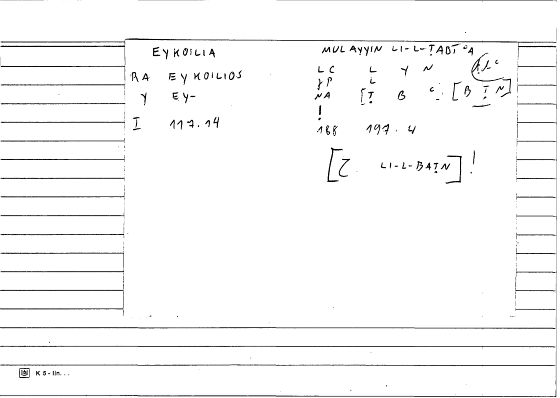 EYKOILIA
RA EYKOILIOS
Y EY-
I 117.14
MULAYYIN LI-L-ṬABĪʿA
LC L Y N
L
NA [Ṭ B ʿ [B Ṭ N]
!
188 197.4
[ LI-L-BAṬN] !
K 5 - lin. . .